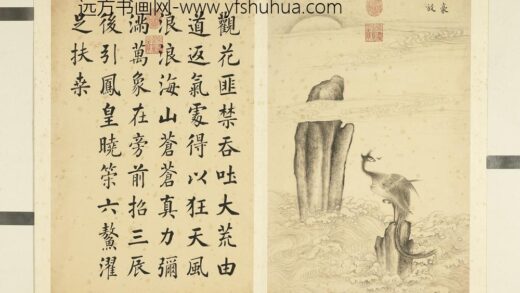 远方书画网- www.yfshuhua.com
豪放
觀花匪禁吞吐大荒由
道返氣處得以狂天風
浪浪海山蒼蒼真力彌
滿萬象在旁前招三辰
後引鳳皇曉策六鰲濯
足扶桒